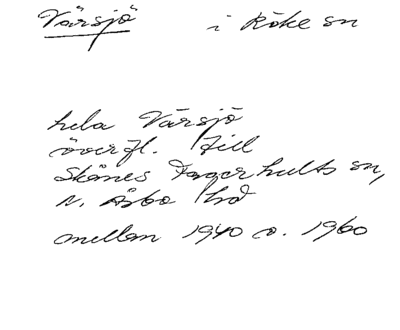 Värsjö i Röke sn
hela Värsjö
överfl. till
Skånes Fagerhults sn,
N. Åsbo hd
mellan 1940 o. 1960